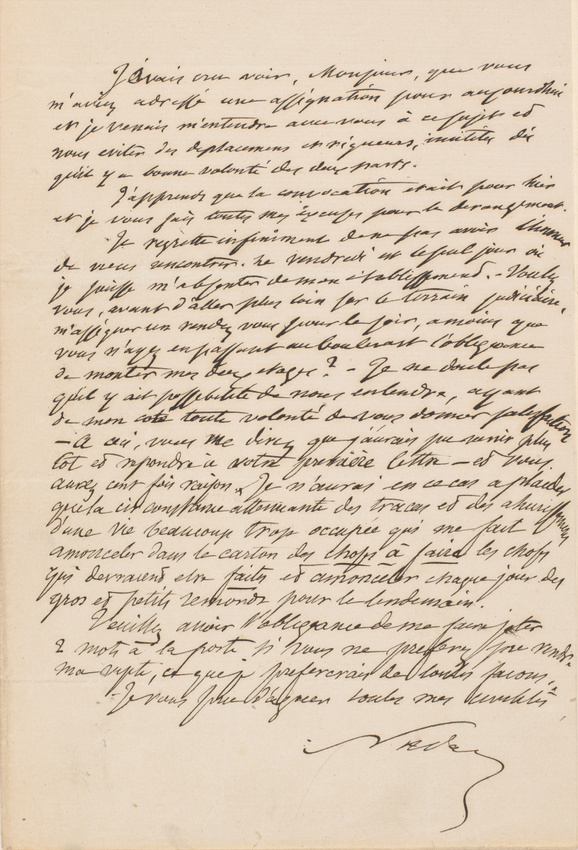 J'avais cru voir, Monsieur, que vous
m'aviez adressé une assignation pour aujourd'hui
et je venais m'entendre avec vous à ce sujet et
nous eviter des deplacemens et rigueurs, inutiles dès
qu'il y a bonne volonté des deux parts.
J'apprends que la convocation etait pour hier
et je vous fais toutes mes excuses pour le derangement.
Je regrette infiniment de ne pas avoir l'honneur
de vous rencontrer. Le vendredi est le seul jour où
je puisse m'absenter de mon etablissement. - Voulez
vous, avant d'aller plus loin sur le terrain judiciaire,
m'assigner un rendez vous pour le soir, amoins que
vous n'ayez en passant au boulevart l'obligeance
de monter mes deux etages ? - Je ne doute pas
qu'il y ait possibilité de nous entendre, ayant
de mon coté toute volonté de vous donner satisfaction
- A ceci, vous me direz que j'aurais pu venir plus
tot et repondre à votre première lettre - et vous
aurez cent fois raison. Je n'aurai en ce cas a plaider
que la circonstance attenuante des tracas et des ahurissemens
d'une vie beaucoup trop occupée qui me fait
amonceler dans le carton des choses à faire les choses
qui devraient etre faites et amonceler chaque jour des
gros et petits remords pour le lendemain.
Veuillez avoir l'obligeance de me faire jeter
2 mots à la poste si vous ne preferez me rendre
ma visite, ce que je prefererais de toutes facons.
- Je vous prie d'agreer toutes mes civilités
Nadar